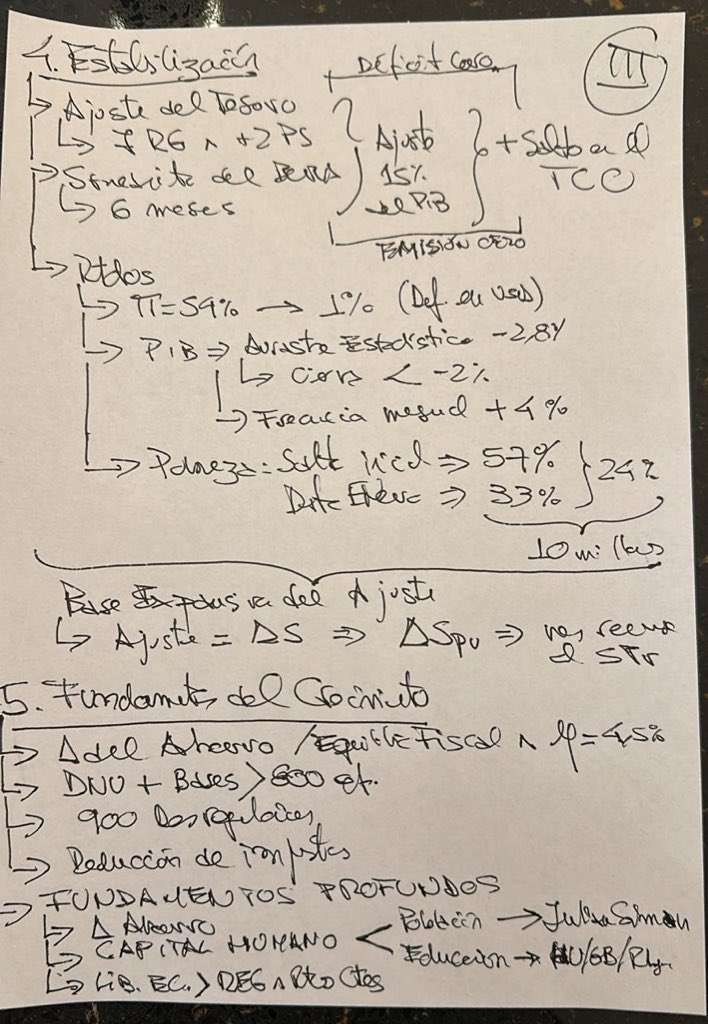 III
4. Estabilización
Déficit Cero
→ Ajuste del Tesoro
↳ 7 RG ∧ +2 PS
Ajuste 15% del PIB
+ Salto en el TCO
→ del BCRA
↳ 6 meses
EMISIÓN CERO
↳ Rtdos
↳ π = 54% → 1% (Def. en US$)
→ PIB ⇒ Arrastre Estadístico -2,8%
↳ Cierra < -2%
↳ mensual +4%
↳ Pobreza: Salto inicial ⇒ 57%
⇒ 33%
} 24%
10 millones
Base Expansiva del Ajuste
↳ Ajuste = ΔS ⇒ ΔSpv ⇒ el
5. Fundamentos del Crecimiento
→ Δ del Ahorro / Equilibrio Fiscal ∧ = 4,5%
→ DNU + Bases > 800
→ 900 Desregulaciones
→ Reducción de impuestos
→ FUNDAMENTOS PROFUNDOS
↳ Δ Ahorro
↳ CAPITAL HUMANO < Población → Julian Simon
Educación →
↳ LIB. EC. > REG ∧ Rto Ctes